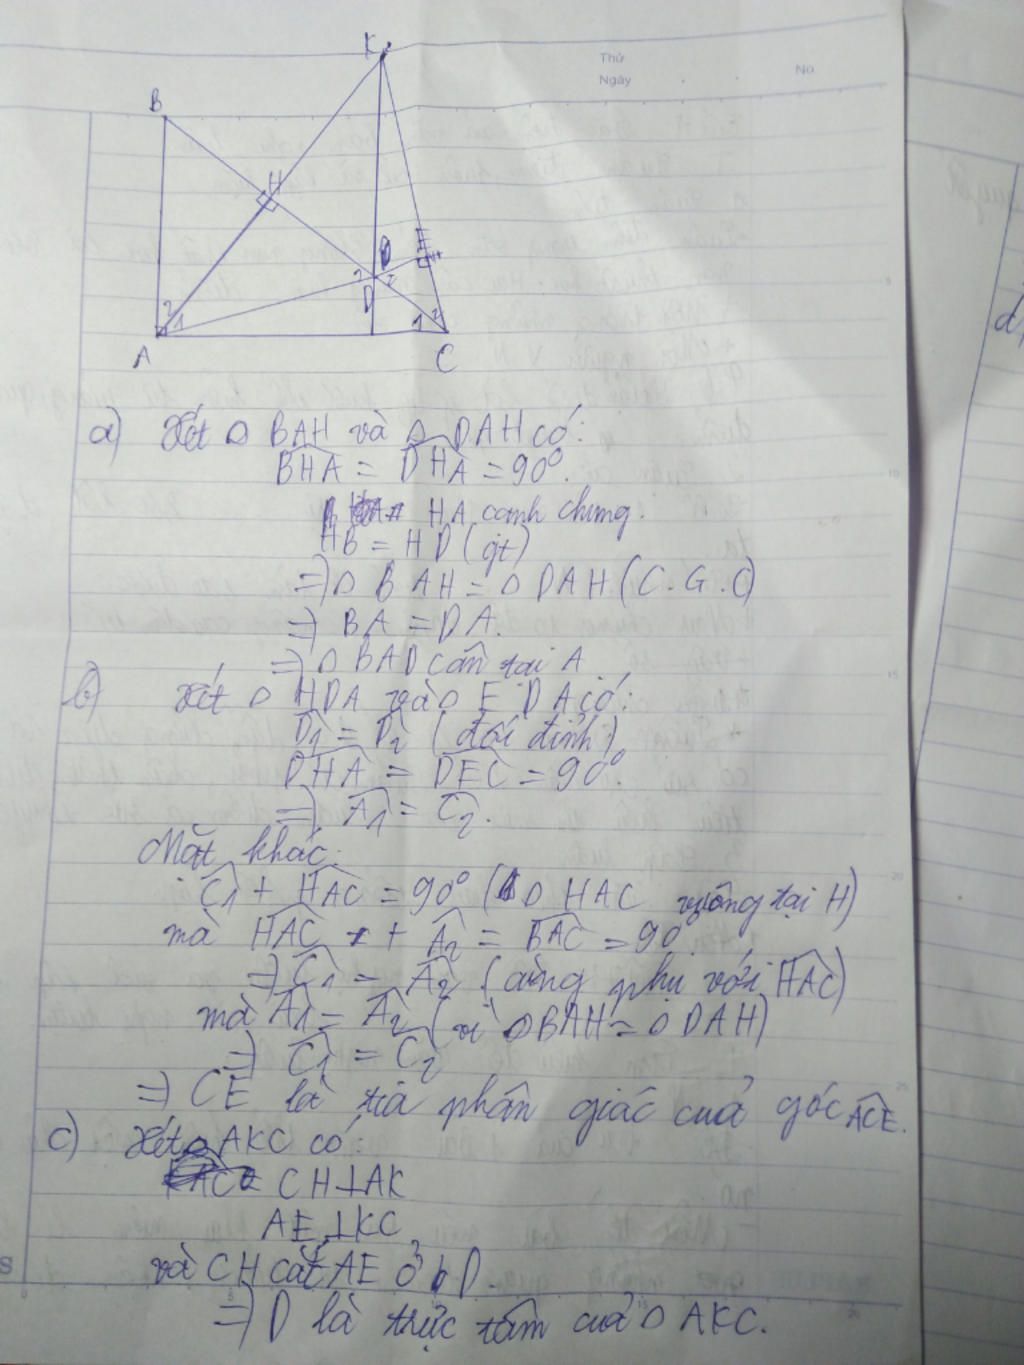 K
Thứ
Ngày
No
B
H
E
D
D
1
2
2
1
1
2
A
C
d)
a) Xét △ BAH và △ DAH có:
BHA = DHA = 90°.
HA cạnh chung.
HB = HD (gt)
=> △ BAH = △ DAH (C.G.C)
=> BA = DA.
=> △ BAD cân tại A
b) Xét △ HDA và △ E DA có:
D1 = D2 (đối đỉnh)
DHA = DEC = 90°
=> A1 = C2.
Mặt khác:
C1 + HAC = 90° (△ HAC vuông tại H)
mà HAC + A2 = BAC = 90
=> C1 = A2 (cùng phụ với HAC)
mà A1 = A2 (vì △BAH = △ DAH)
=> C1 = C2
=> CE là tia phân giác cuả góc ACE.
c) Xét △ AKC có:
CH⊥AK
AE⊥KC
và CH cắt AE ở D
=> D là trực tâm cuả △ AKC.